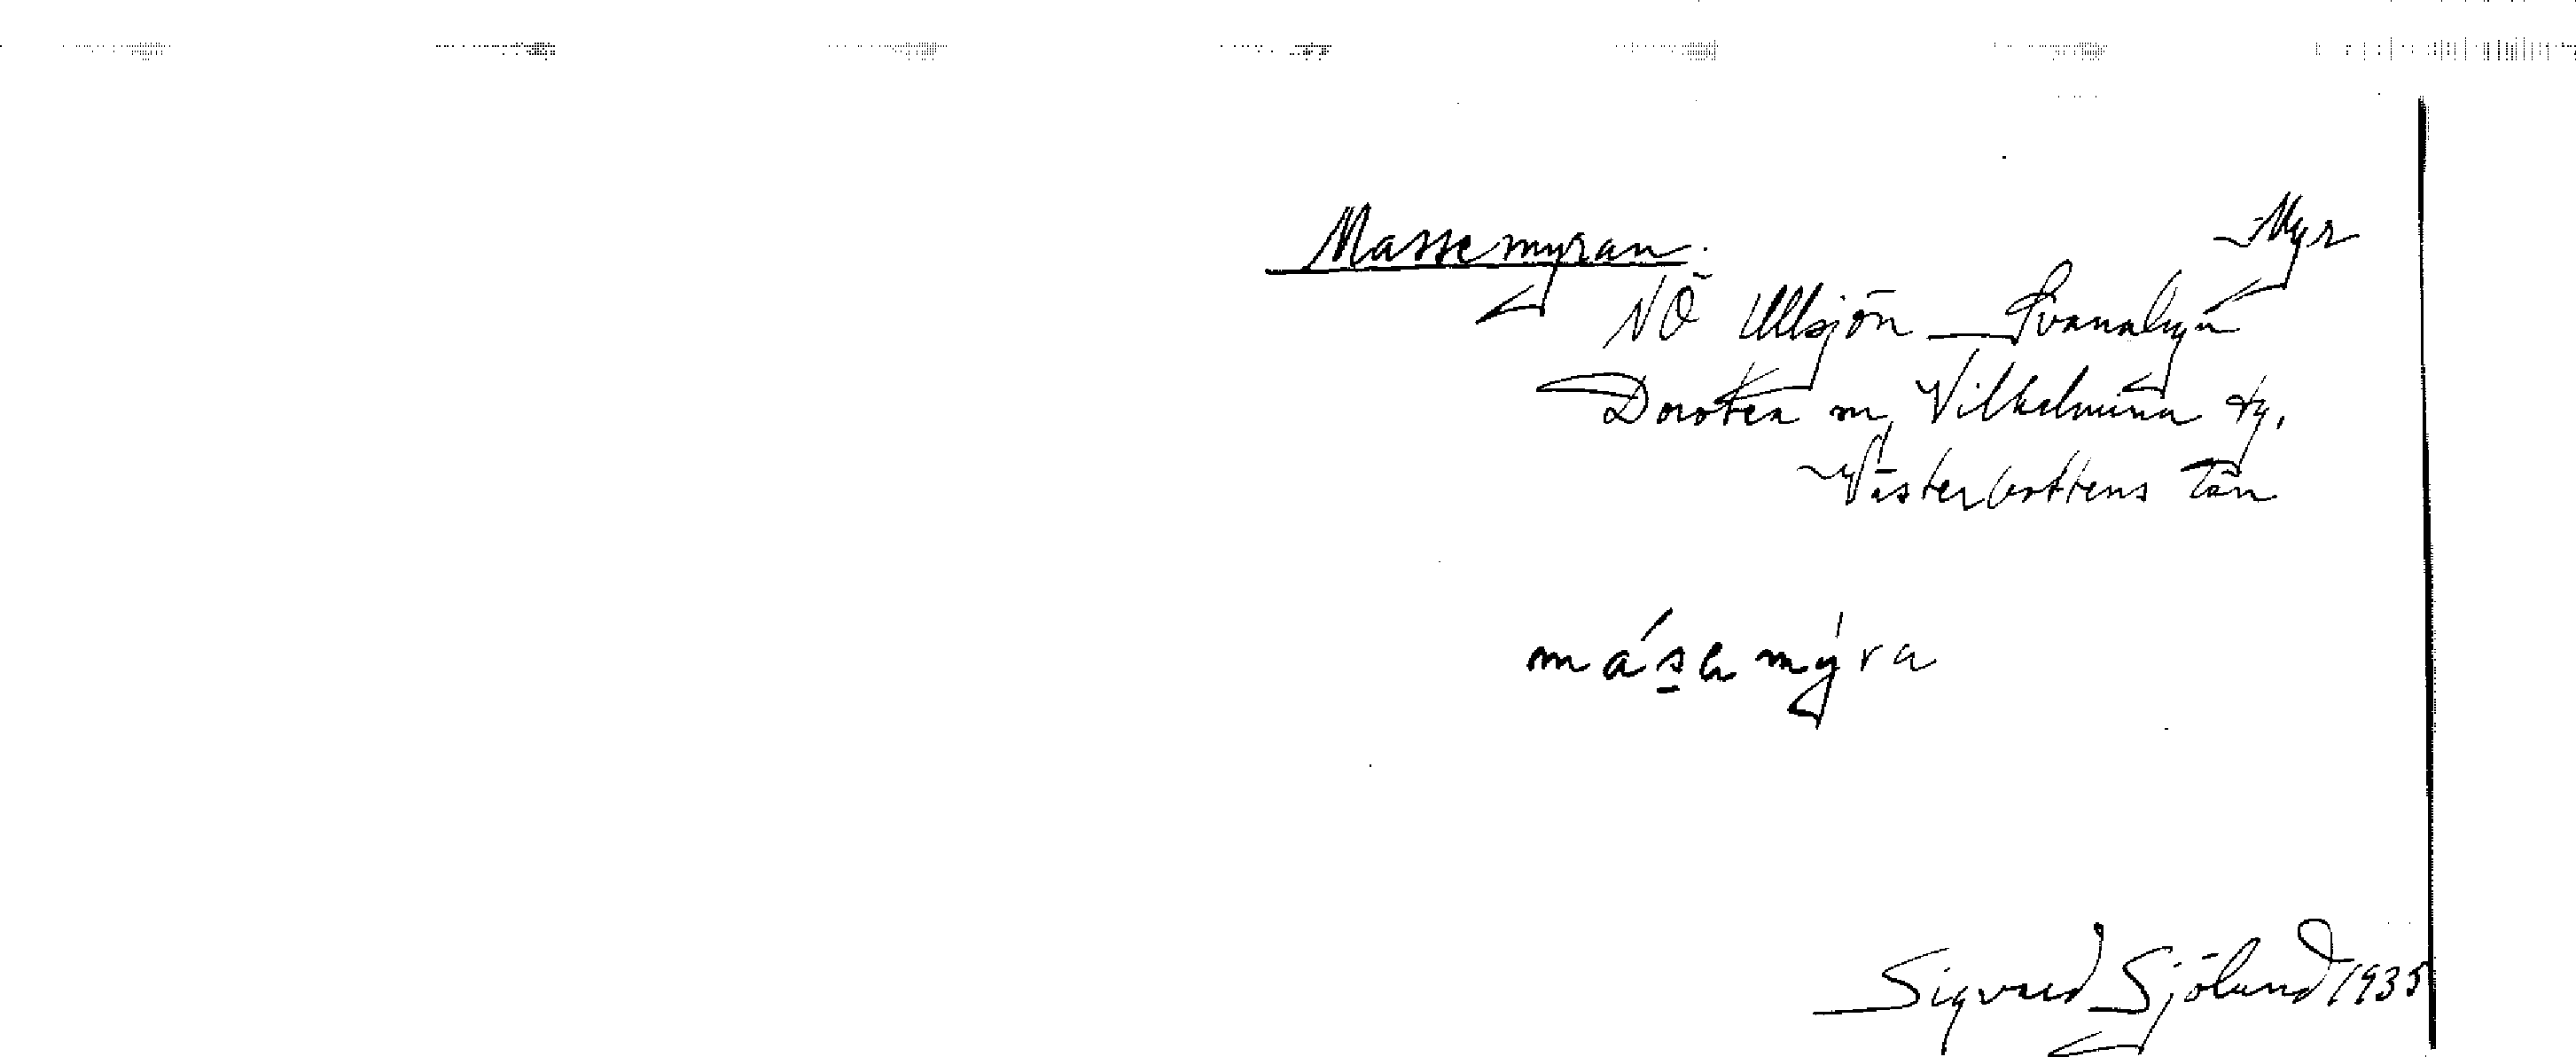 Massemyran. Myr
NÖ Ullsjön Svanabyn
Dorotea m, Vilhelmina tg,
Västerbottens län
Sigvard Sjölund 1935